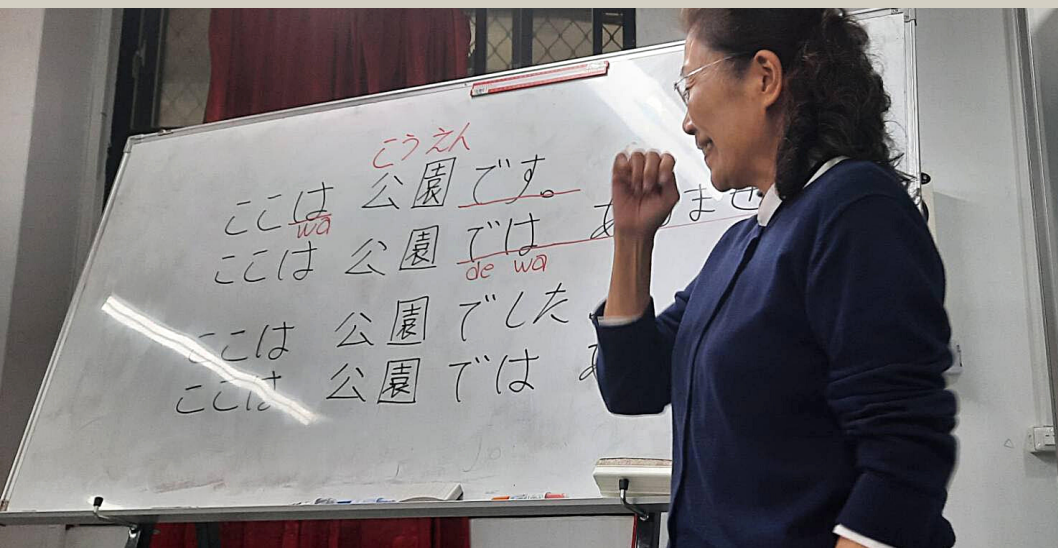 こうえん
ここは 公園です。
wa
ここは 公園では ませ
de wa
ここは 公園でした
ここは 公園では